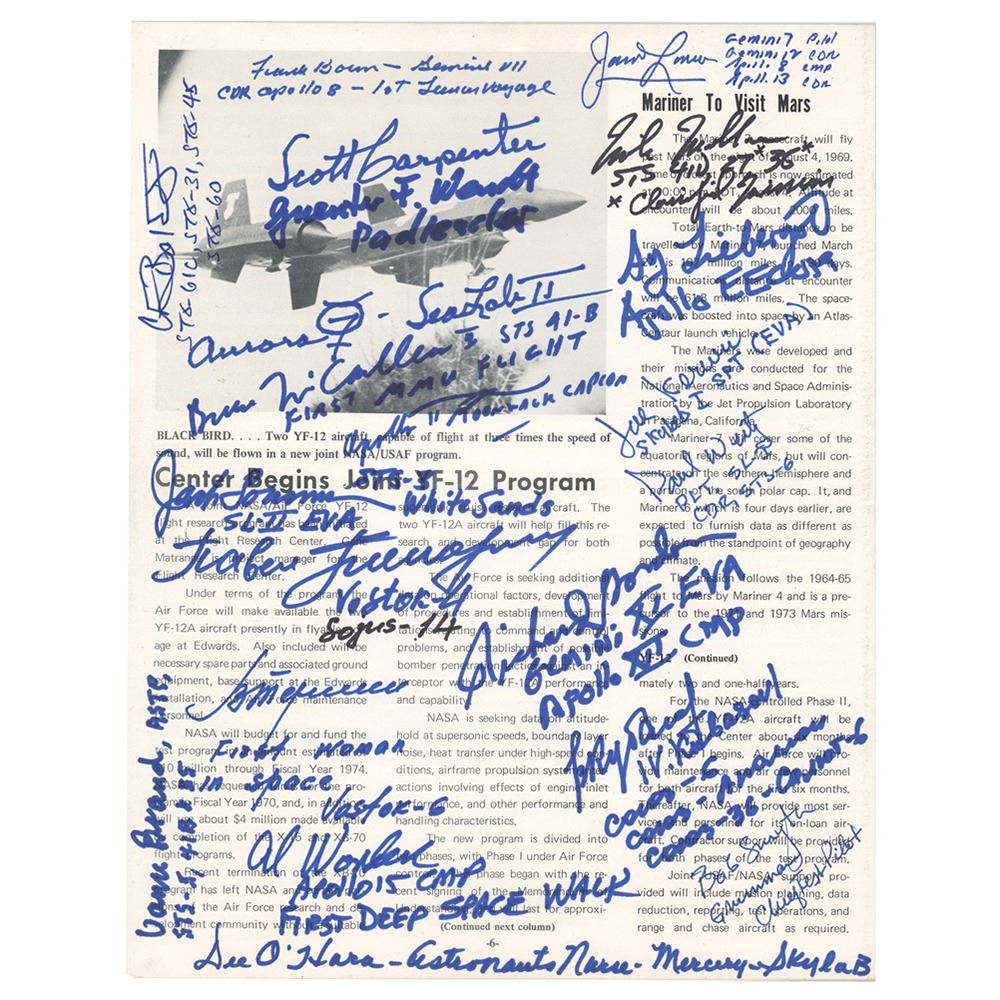 Frank Borman - Gemini VII
CDR Apollo 8 - 1st Lunar Voyage
James Lovell
Gemini 7 Pilot
Gemini 12 CDR
Apll. 8 CMP
Apll. 13 CDR
Scott Carpenter
Guenter F. Wendt
Padleader
Aurora 7 - Sealab II
STS-61C, STS-31, STS-45
STS-60
Bruce McCandless II STS 41-B
FIRST MMU FLIGHT
Apollo 11 MOONWALK CAPCOM
BLACK BIRD. . . . Two YF-12 aircraft, capable of flight at three times the speed of
sound, will be flown in a new joint NASA/USAF program.
Center Begins Joint YF-12 Program
Jack Lousma
SL II EVA
STS-3
White Sands
Vostok-4
Soyus-14
First woman
in space
Vostok-6
Al Worden
APOLLO 15 CMP
FIRST DEEP SPACE WALK
Vance Brand ASTP
STS-5, 41B & 35
Richard Gordon
GEMINI XI EVA
Apollo XII-CMP
Mariner To Visit Mars
STS 41D
* Classified Mission *
Sy Liebergot
Apollo EECOM
SKYLAB I SPT (EVA)
Paul Weitz
PLT SL-2
CDR, STS-6
The Mariner 7 spacecraft will fly
past Mars on the night of August 4, 1969.
Time of closest approach is now estimated
encounter will be about 2000 miles.
Total Earth-to-Mars distance to be
travelled by Mariner 7, launched March
27, is 197 million miles in 130 days.
Communications distance at encounter
will be 61.8 million miles. The space-
craft was boosted into space by an Atlas-
Centaur launch vehicle.
The Mariners were developed and
their missions are conducted for the
National Aeronautics and Space Adminis-
tration by the Jet Propulsion Laboratory
of Pasadena, California.
Mariner 7 will cover some of the
equatorial region of Mars, but will con-
centrate on the southern hemisphere and
a portion of the south polar cap. It, and
Mariner 6, which is four days earlier, are
expected to furnish data as different as
possible from the standpoint of geography
and climate.
The mission follows the 1964-65
flight to Mars by Mariner 4 and is a pre-
cursor to the 1971 and 1973 Mars mis-
sions.
A joint NASA/Air Force YF-12
flight research program has been initiated
at the Flight Research Center. Gene
Matranga is project manager for the
Flight Research Center.
Under terms of the program, the
Air Force will make available the two
YF-12A aircraft presently in flyable stor-
age at Edwards. Also included will be
necessary spare parts and associated ground
equipment, base support at the Edwards
installation, and Air Force maintenance
personnel.
NASA will budget for and fund the
test program in an amount estimated at
$10 million through Fiscal Year 1974.
will use about $4 million made available
by completion of the X-15 and XB-70
flight programs.
Recent termination of the XB-70
program has left NASA and
the Air Force research and de-
velopment community without a suitable
supersonic cruise research aircraft. The
two YF-12A aircraft will help fill this re-
search and development gap for both
The Air Force is seeking additional
data on operational factors, development
of procedures and establishment of lim-
itations relating to command and control
problems, and establishment of possible
bomber penetration tactics against an in-
terceptor with the YF-12A performance
and capability.
NASA is seeking data on altitude-
hold at supersonic speeds, boundary layer
noise, heat transfer under high-speed con-
ditions, airframe propulsion system inter-
actions involving effects of engine inlet
performance, and other performance and
handling characteristics.
The new program is divided into
two phases, with Phase I under Air Force
control. This phase began with the re-
cent signing of the Memorandum of
Understanding and will last for approxi-
(Continued next column)
YF-12 (Continued)
mately two and one-half years.
For the NASA-controlled Phase II,
one of the YF-12A aircraft will be
moved to the Center about six months
after Phase I begins. Air Force will pro-
vide maintenance and air crew personnel
for both aircraft for the first six months.
Thereafter, NASA will provide most ser-
vices and personnel for its on-loan air-
craft. Contractor support will be provided
for both phases of the test program.
Joint USAF/NASA support pro-
vided will include mission planning, data
reduction, reporting, test operations, and
range and chase aircraft as required.
Bob Smyth
Grumman
Chief Test Pilot
-6-
Dee O'Hara - Astronauts Nurse - Mercury - Skylab